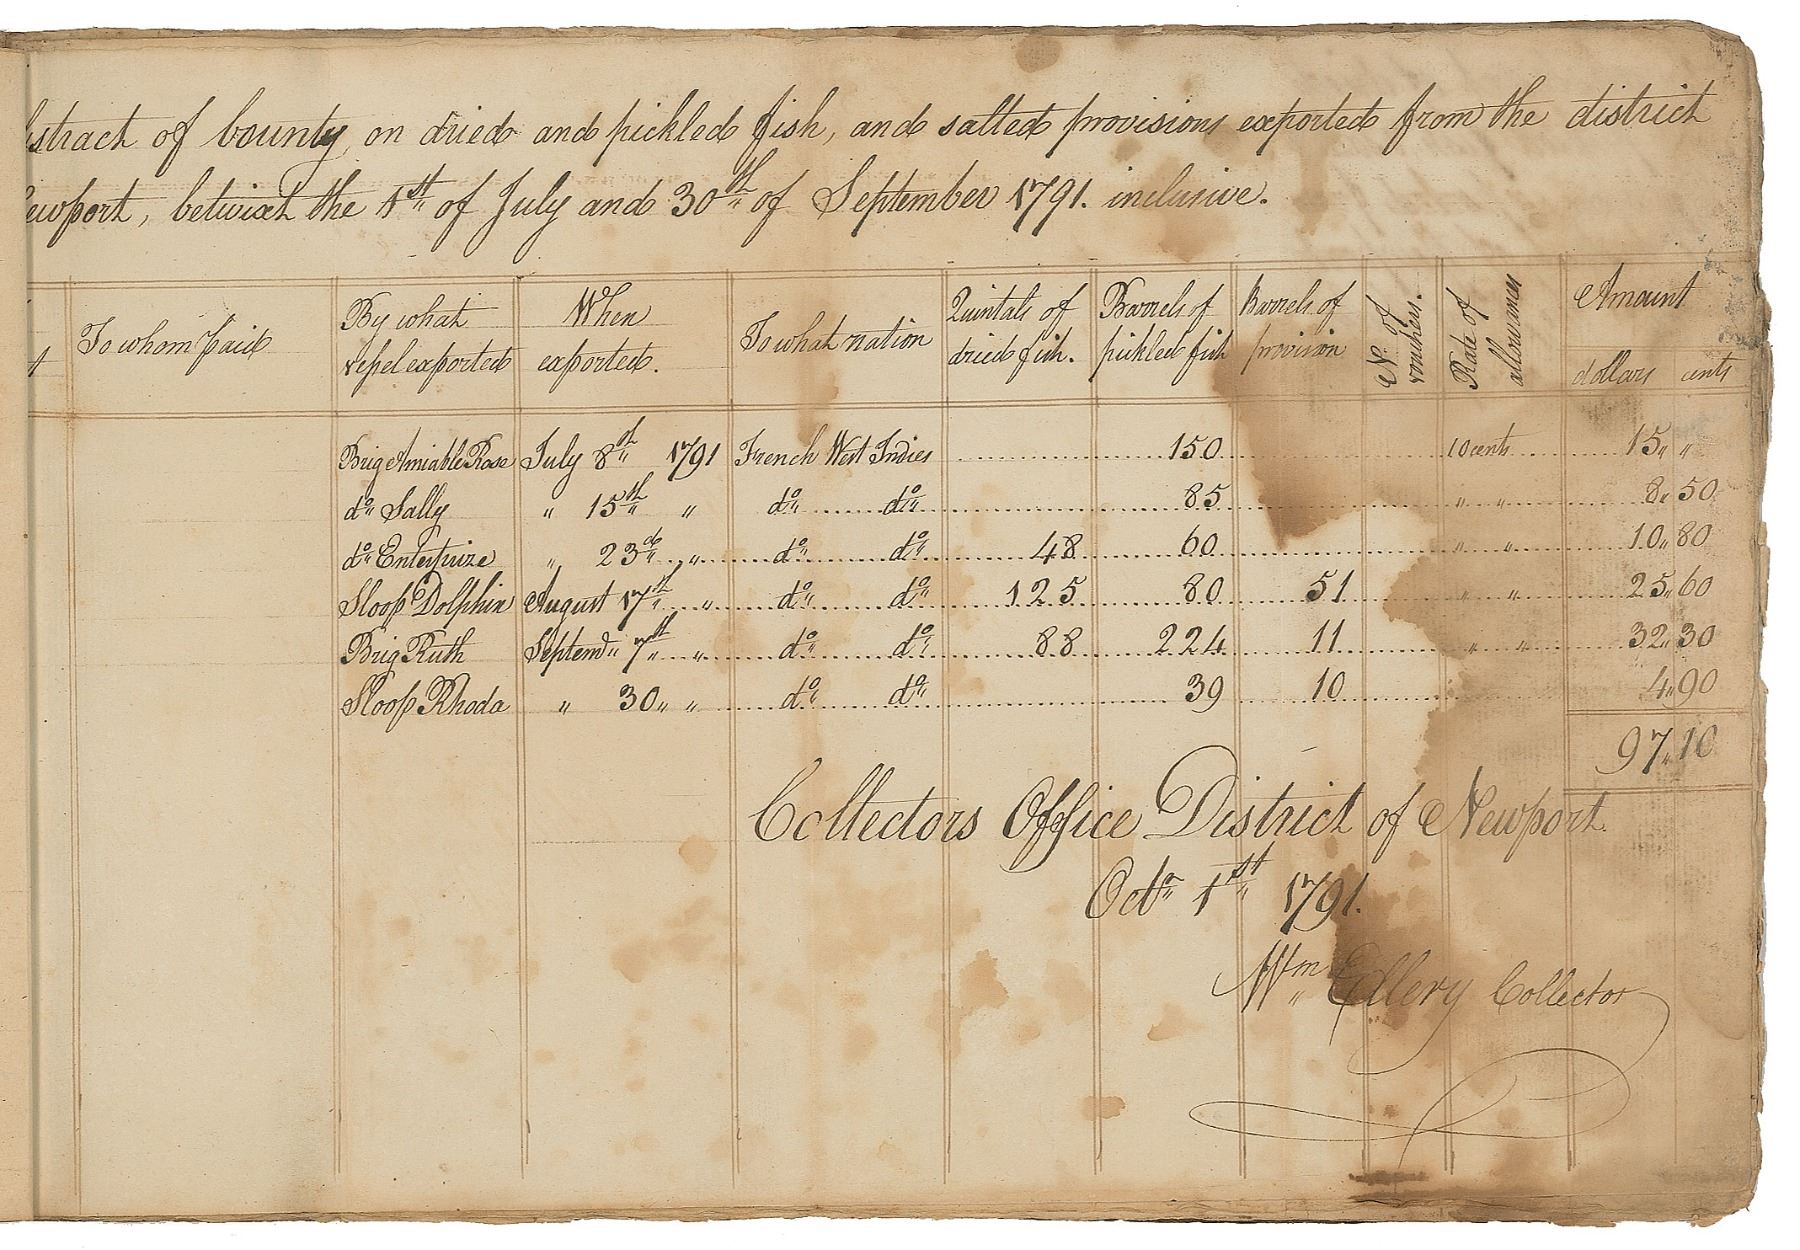 bstract of bounty on dried and pickled fish, and salted provisions exported from the district
ewport, betwixt the 1st of July and 30th of September 1791. inclusive.
To whom Paid
By what vessel exported
When exported.
To what nation
Quintals of dried fish.
Barrels of pickled fish
Barrels of provision
No of vouchers.
Rate of allowances
Amount
dollars cents
Brig Amiable Rose July 8th 1791 French West Indies 150 10 cents 15 " "
do Sally " 15th " do do 85 " " 8 " 50
do Enterprize " 23d " do do 48 60 " " 10 " 80
Sloop Dolphin August 17th " do do 125 80 51 " " 25 " 60
Brig Ruth Septemr 7th " do do 88 224 11 " " 32 " 30
Sloop Rhoda " 30 " " do do 39 10 4 " 90
97 " 10
Collectors Office District of Newport
Octr 1st 1791.
Wm Ellery Collector